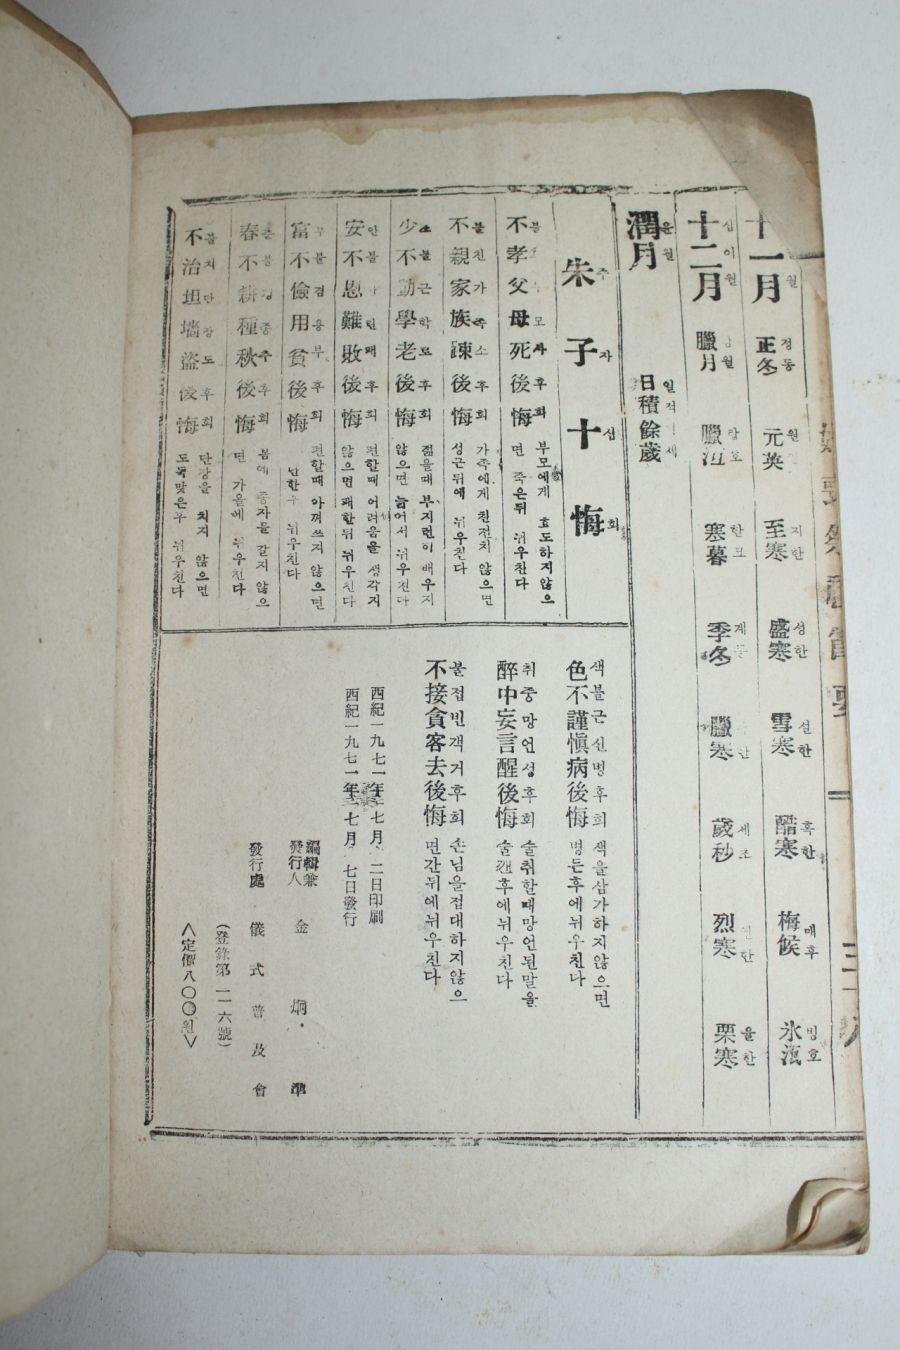 十一月 월 正冬 정동 元英 원 至寒 지한 盛寒 성한 雪寒 설한 酷寒 혹한 梅候 매후 氷沍 빙호
十二月 십이월 臘月 월 臘沍 寒暮 한모 季冬 계동 臘寒 歲秒 세초 烈寒 栗寒 율한
潤月 윤월 日積餘歲
朱子十悔 주자십회
不孝父母死後悔 부모에게 효도하지않으면 죽은뒤 뉘우친다
不親家族踈後悔 불친가족소후회 가족에게 친절치 않으면 성근뒤에 뉘우친다
少不勤學老後悔 소불근학로후회 젊을때 부지런이 배우지 않으면 늙어서 뉘우친다
安不思難敗後悔 편할때 어려움을 생각지 않으면 패한뒤 뉘우친다
富不儉用貧後悔 편할때 아껴쓰지 않으면 난한후 뉘우친다
春不耕種秋後悔 봄에 종자를 갈지 않으면 가을에 뉘우친다
不治坦墻盜後悔 불치단장도후회 단장을 치지 않으면 도둑맞은후 뉘우친다
色不謹愼病後悔 색불근신병후회 색을삼가하지않으면 병든후에뉘우친다
醉中妄言醒後悔 취중망언성후회 술취할때망언된말을 술깬후에뉘우친다
不接貪客去後悔 불접빈객거후회 손님을접대하지않으면간뒤에뉘우친다
西紀一九七一年 七月 二日印刷
西紀一九七一年 七月 七日發行
編輯兼發行人 金炯準
發行處 儀式普及會
(登錄第一一六號)
<定價八〇〇원>